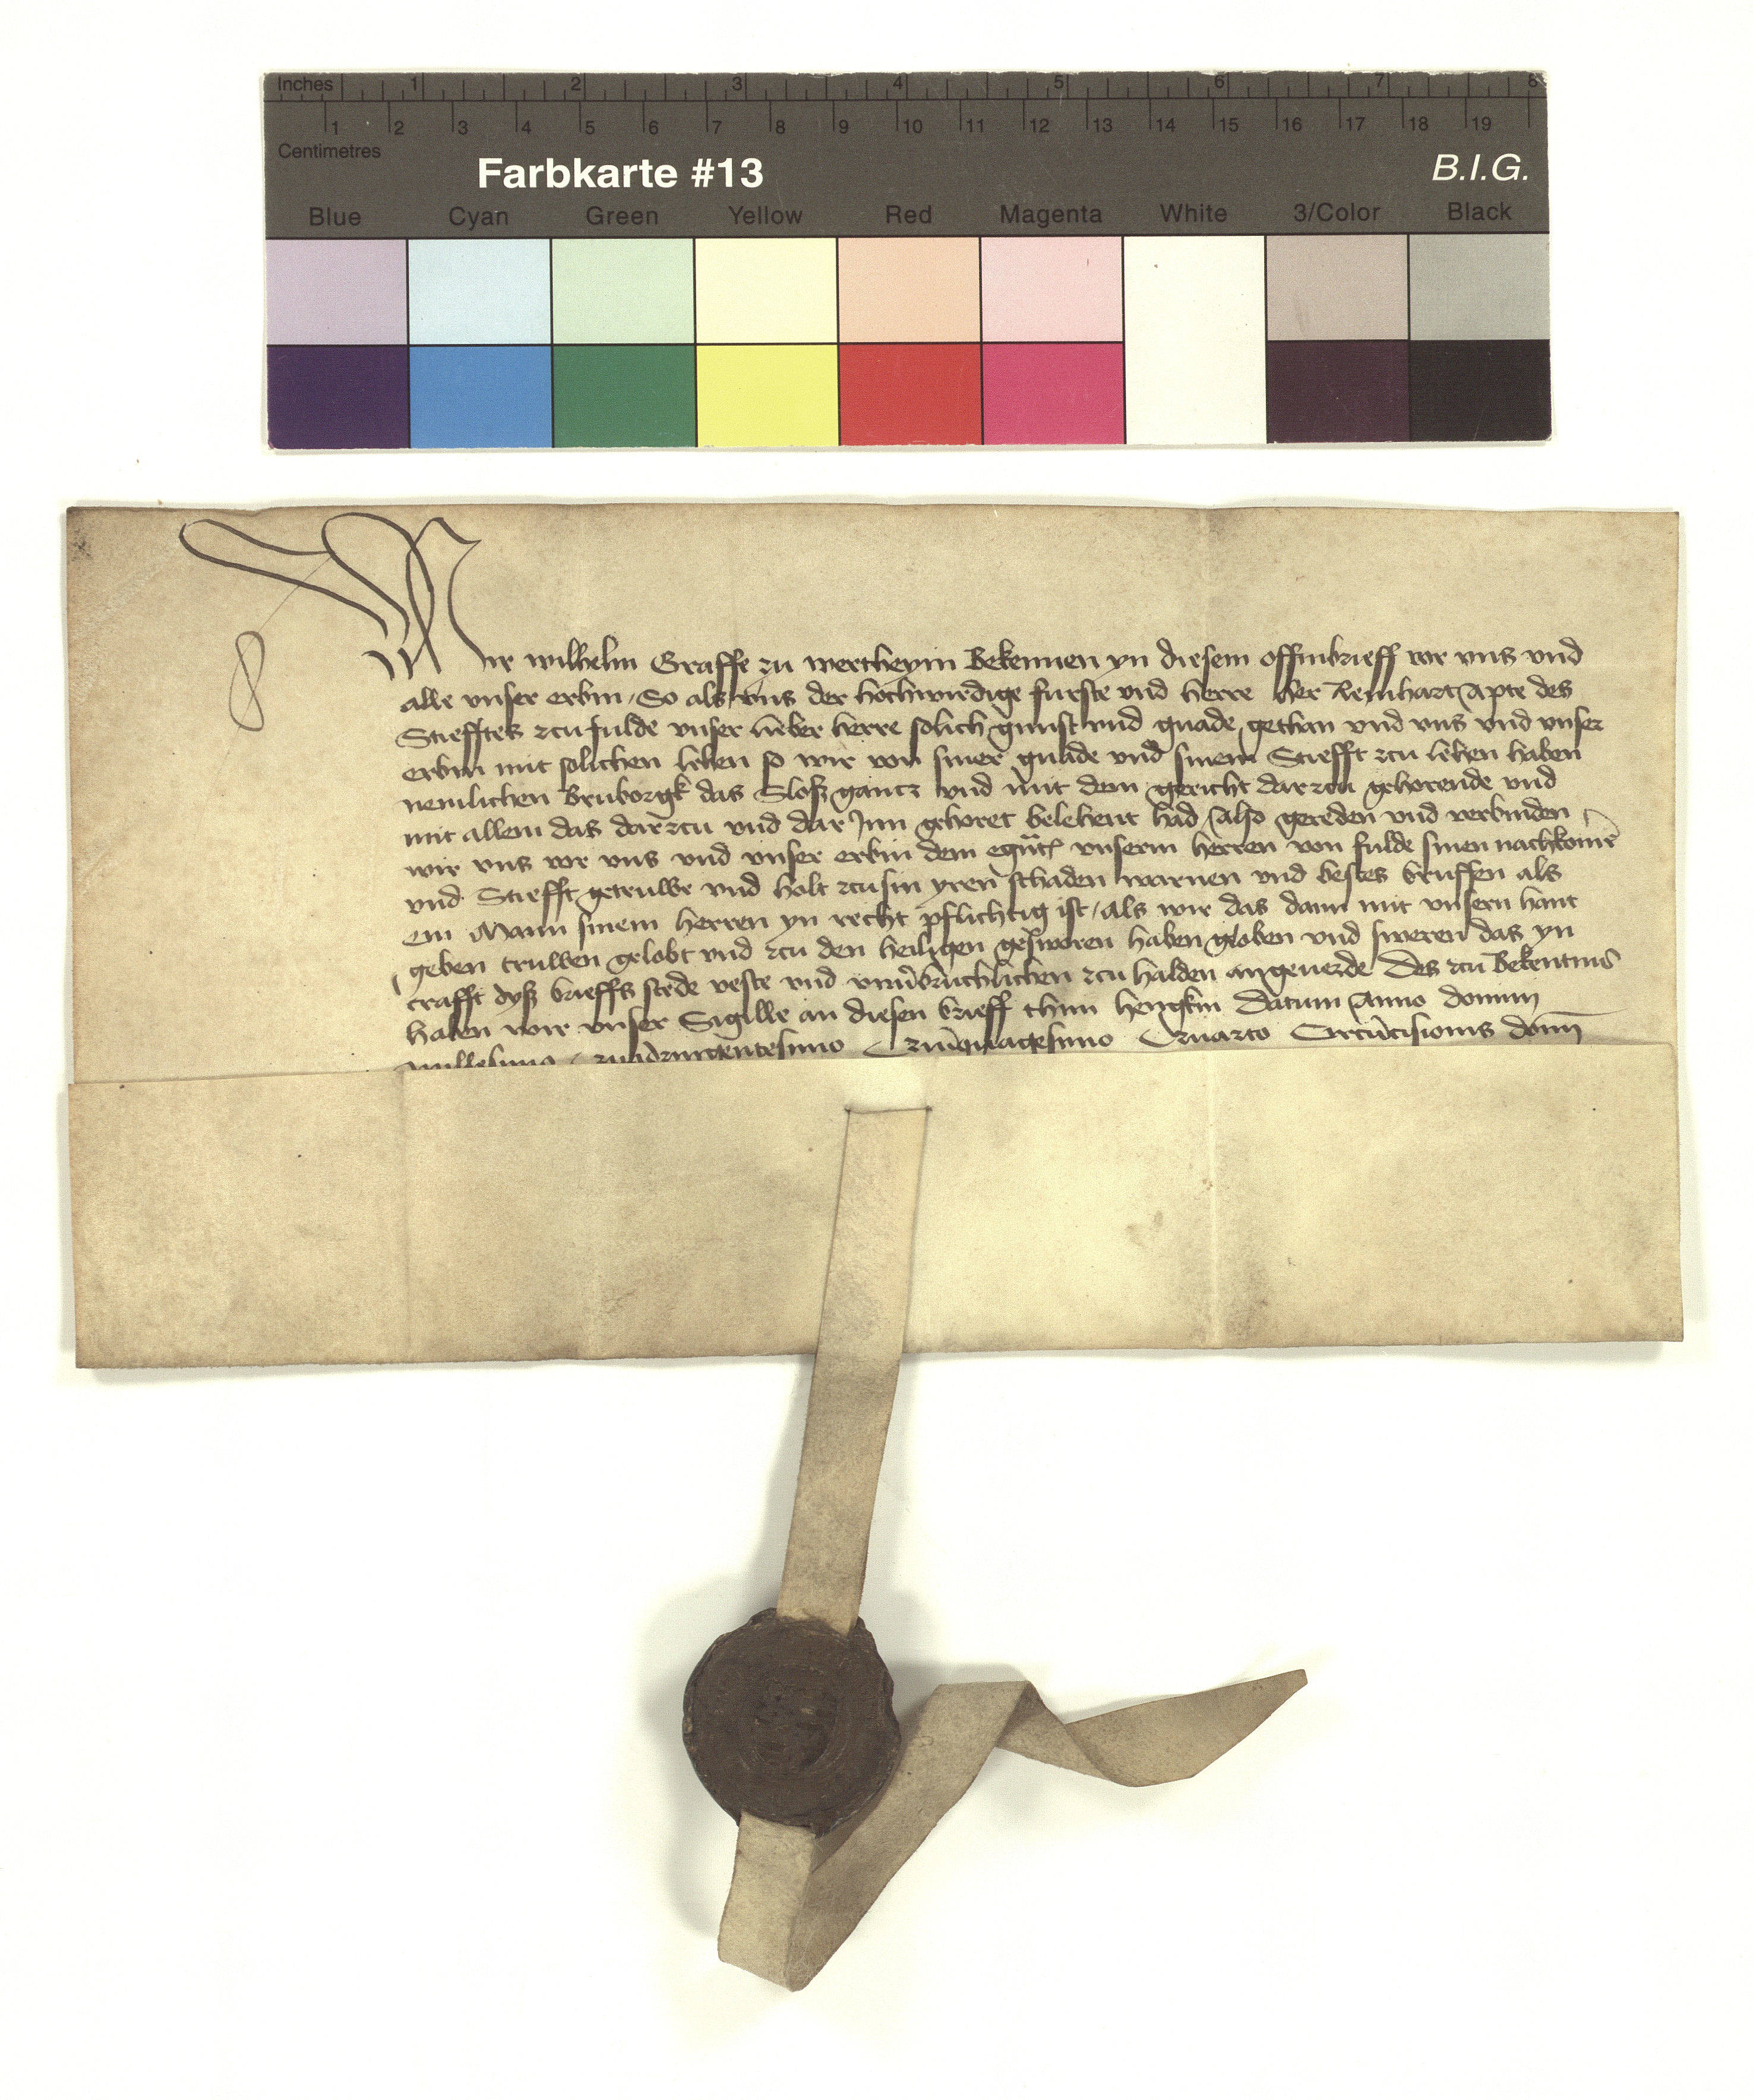 Inches 1 2 3 4 5 6 7 8
1 2 3 4 5 6 7 8 9 10 11 12 13 14 15 16 17 18 19
Centimetres
Farbkarte #13 B.I.G.
Blue Cyan Green Yellow Red Magenta White 3/Color Black
Wir wilhelm Graffe zu wertheym Bekennen yn diesem offinbrieff vor vns vnd
alle vnser erbin / So als vns der hochwirdige furste vnd herre her Reinhart Apte des
Stiefftes zcu fulde vnser lieber herre solich gunst vnd gnade gethan vnd vns vnd vnser
erbin mit solichen lehen so wir von siner gnade vnd sinem Stiefft zcu lehen haben
nemlichen Bruborgk das Sloß gantz vnd mit dem gericht dar zcu gehorende vnd
mit allem das dar zcu vnd dar Jnn gehoret belehent had / Also gereden vnd verbinden
wir vns vor vns vnd vnser erbin dem egñt vnserm herren von fulde sinen nachkomē
vnd Stiefft getruwe vnd holt zcu sin yren schaden warnen vnd bestes bruffen als
ein Mann sinem herren yn recht pflichtig ist / als wir das dann mit vnsern hant
geben truwen gelobt vnd zcu den heiligen gesworen haben globen vnd sweren das yn
crafft dyß brieffs stede veste vnd vnuerbruchlichen zcu halden an geuerde Des zcu Bekentnus
haben wir vnser Sigille an diesen brieff thun hengkin Datum Anno domini
millesimo quadringentesimo Quinquagesimo Quarto Circūcisionis domī